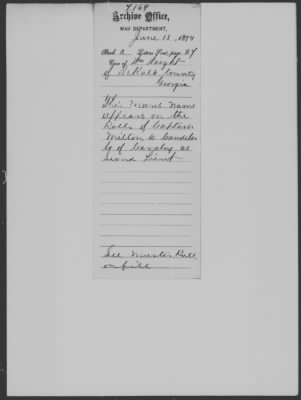 7169
Archive Office,
WAR DEPARTMENT,
June 18, 1874
Book 3 Letters Recd, page 27
Case of Wm Haight
of DeKalb County
Georgia
This mans name
appears on the
Rolls of Captain
Milton A Candler
Co of Cavalry as
Second Lieut
See Muster Roll
on file